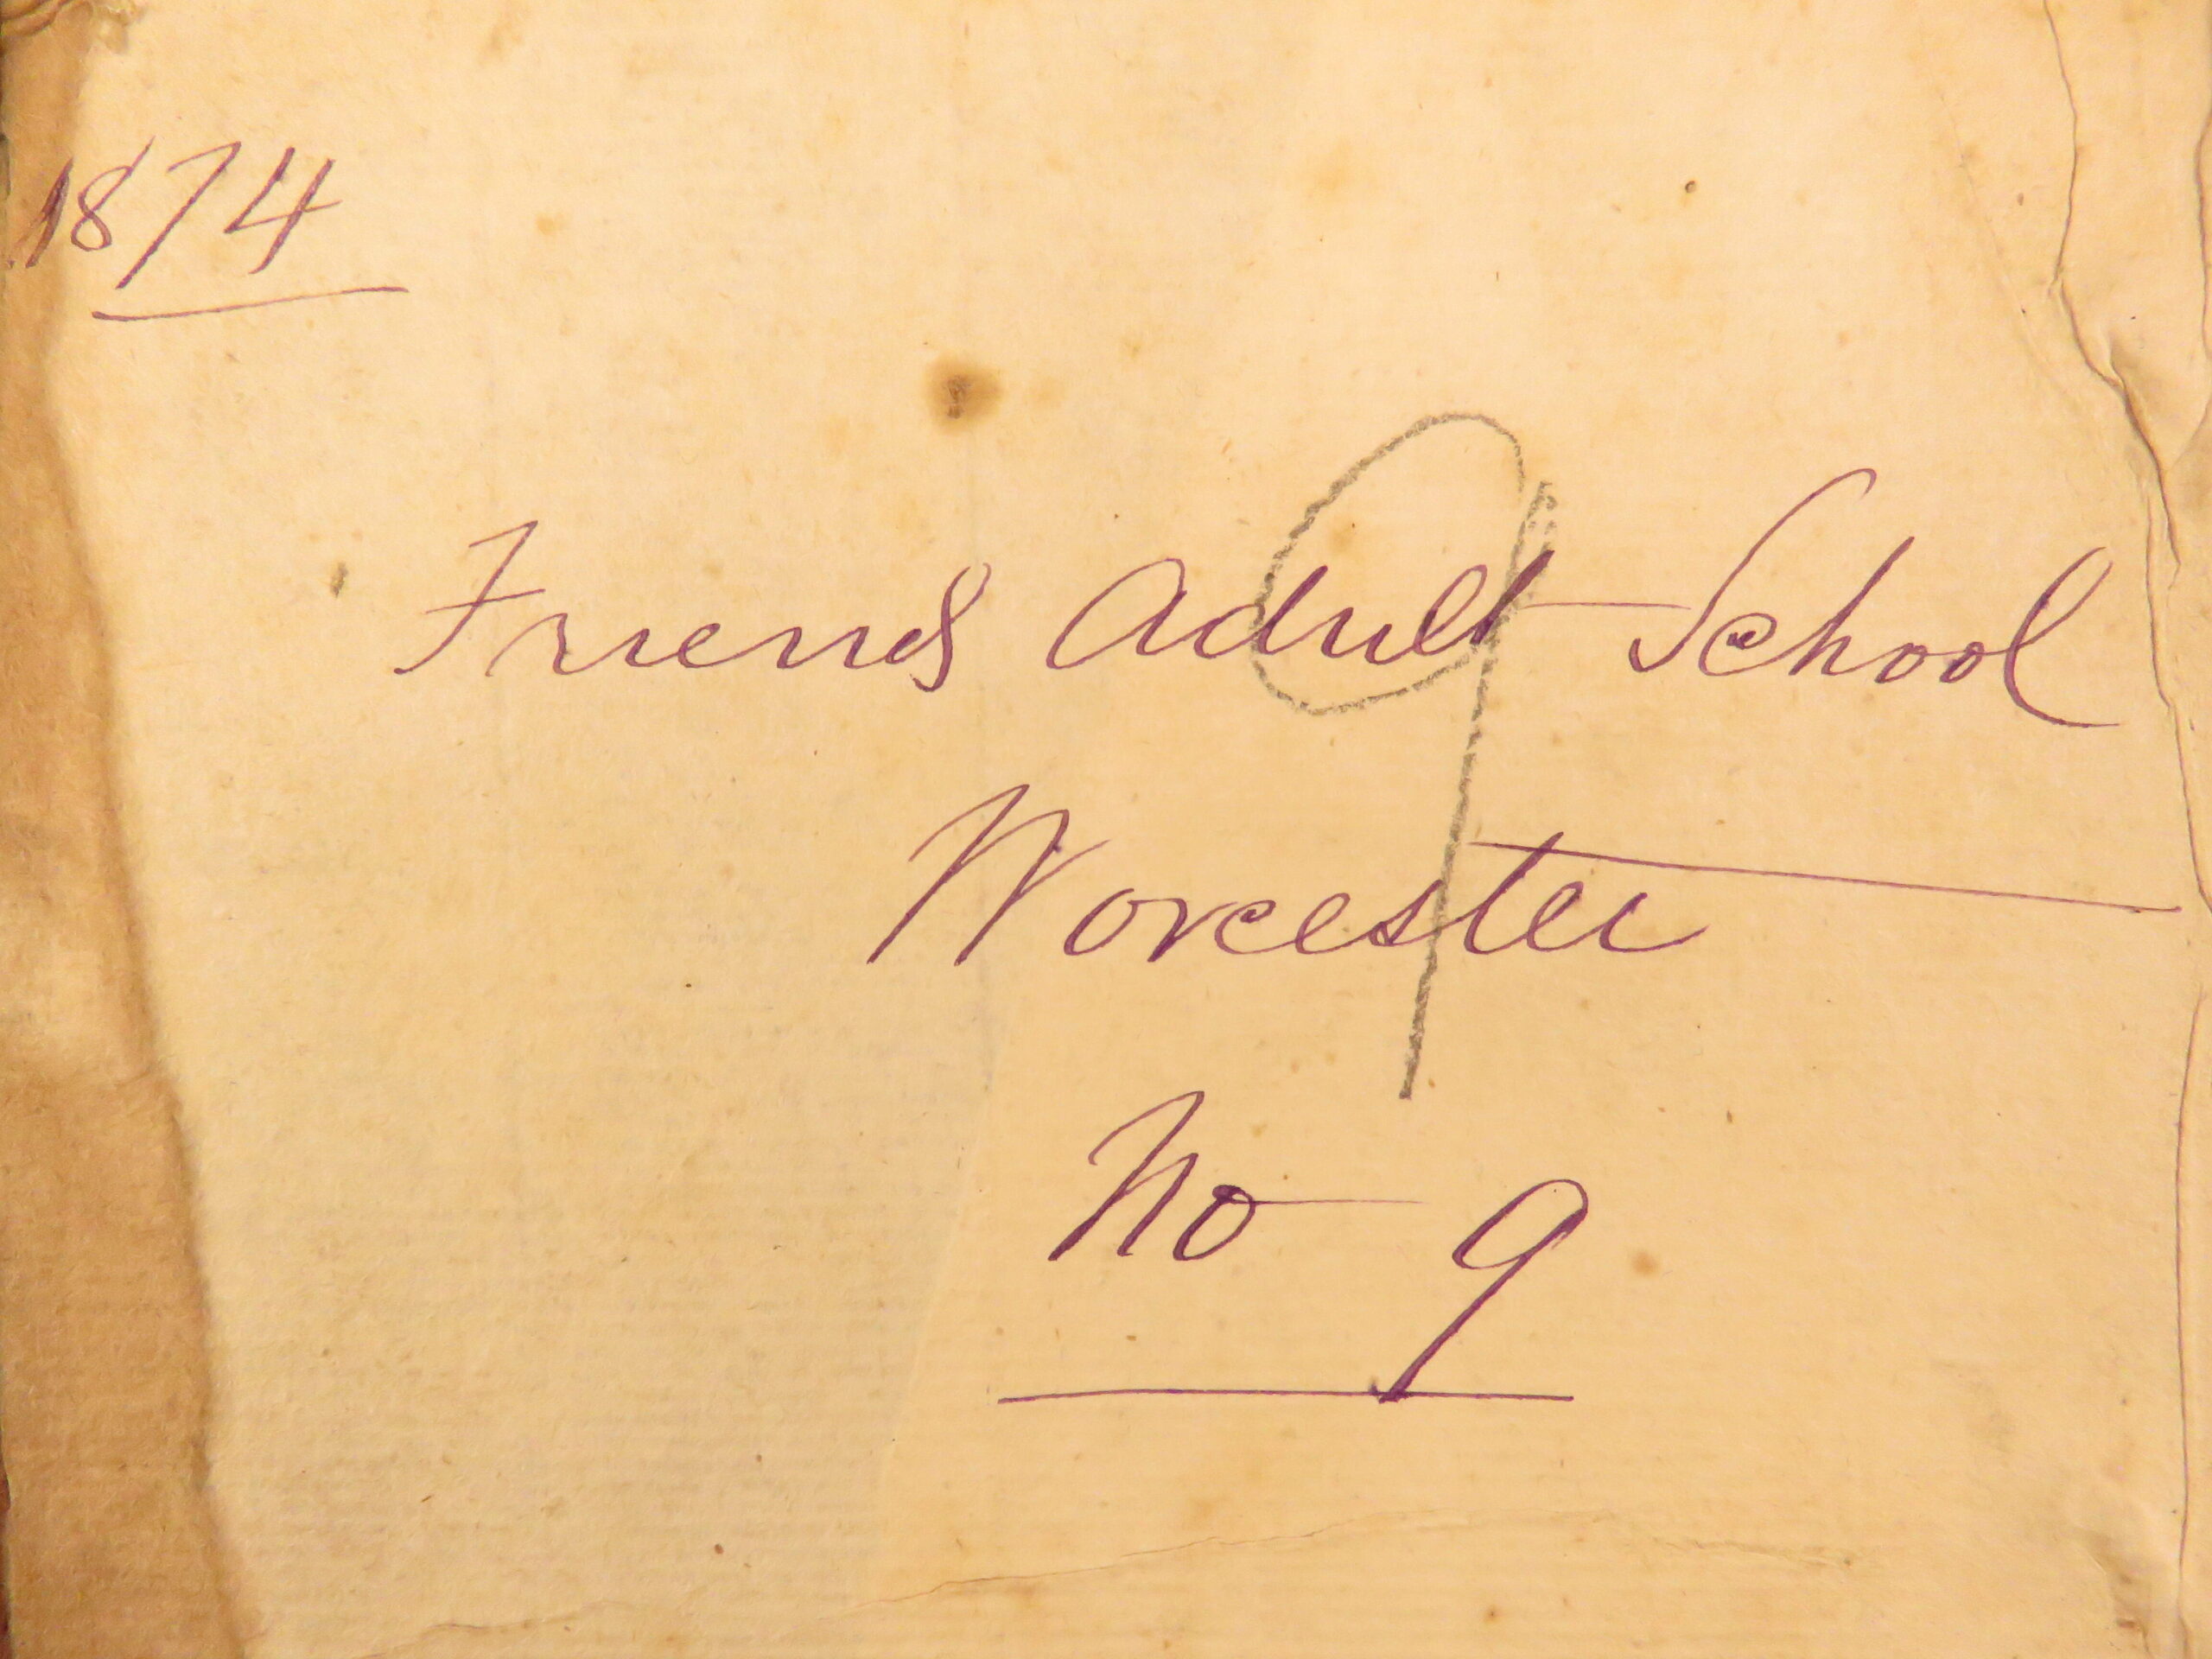 1874
9
Friends Adult School
Worcester
No 9